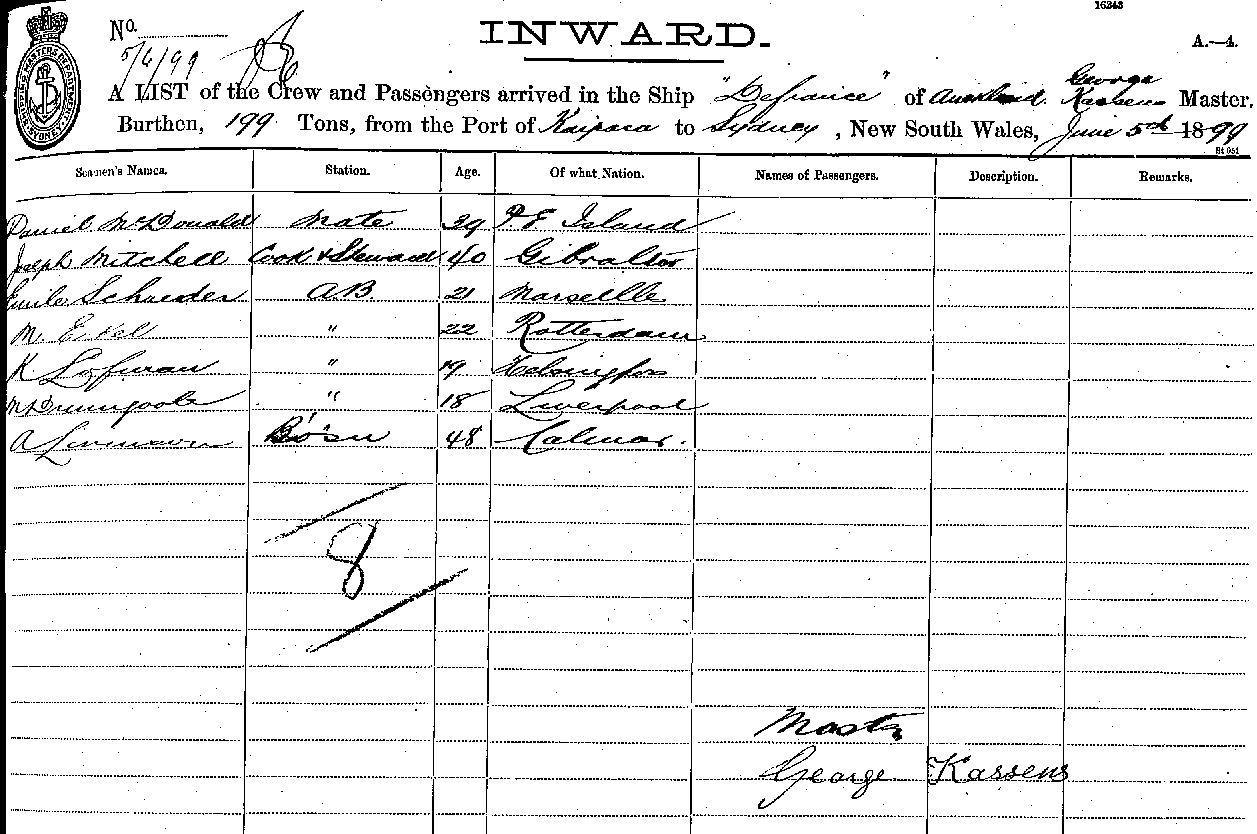 16243
No.
INWARD.
A.—4.
5/6/99
George
A LIST of the Crew and Passengers arrived in the Ship "Defiance" of Auckland. Kassens Master,
Burthen, 199 Tons, from the Port of Kaipara to Sydney, New South Wales, June 5th 1899
St 651
Seamen's Names. Station. Age. Of what Nation. Names of Passengers. Description. Remarks.
Daniel McDonald Mate 39 P.E Island
Joseph Mitchell Cook & Steward 40 Gibraltar
Emile Schneider A.B. 21 Marseille
M. " 22 Rotterdam
K " 19 Helsingfors
" 18 Liverpool
A Bo'sn 48 Calmar.
8
Master
George Kassens